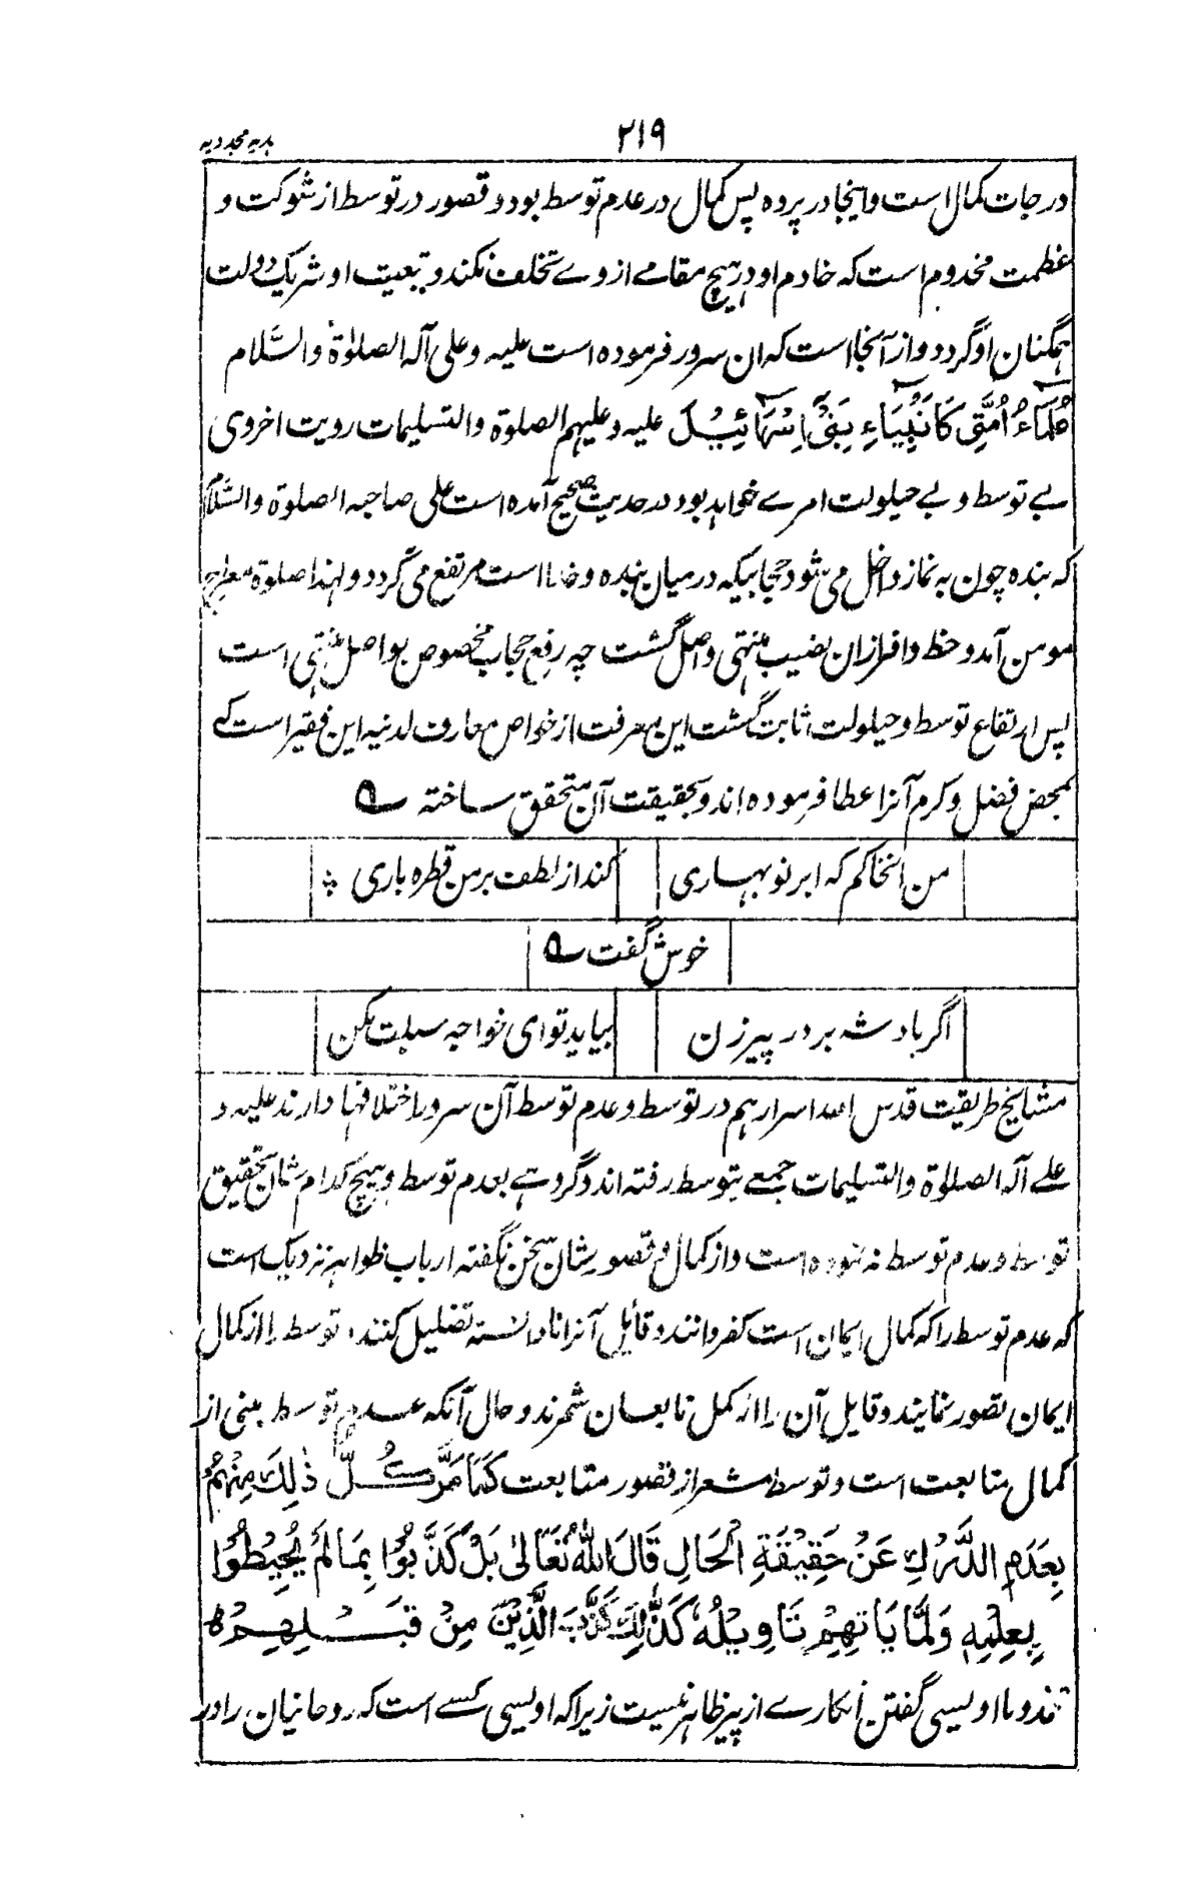 ۲۱۹
ہدیہ مجددیہ
درجات کمال است واینجا در پرده پس کمال در عدم توسط بود و قصور در توسط از شوکت و
عظمت مخدوم است که خادم او در ہیچ مقامے از وے تخلف نکند و تبعیت او شریک دولت
ہمگنان او گردد و از آنجا است که ان سرور فرموده است علیه و علی آله الصلوٰة والسَّلام
عُلَمَآءُ اُمَّتِی کَاَنْبِیَاءِ بَنِیْ اِسْرَائِیْلَ علیه و علیہم الصلوة والتسلیمات رویت اخروی
بے توسط و بے حیلولت امرے خواہد بود در حدیث صحیح آمده است علی صاحبه الصلوة والسَّلام
که بنده چون به نماز داخل می شود حجابیکه در میان بنده و خدا است مرتفع می گردد و لہذا صلوة معراج
مومن آمد و حظ وافر ازان نصیب منتہی واصل گشت چه رفع حجاب مخصوص بواصل منتہی است
پس ارتفاع توسط و حیلولت ثابت گشت این معرفت از خواص معارف لدنیه این فقیر است که
بمحض فضل و کرم آنرا عطا فرموده اند و بحقیقت آن متحقق ساخته ؎
من آنخاکم که ابر نو بہاری کند از لطف بر من قطره باری
خوش گفت ؎
اگر بادشه بر در پیر زن بیاید تو ای خواجه سبلت مکن
مشایخ طریقت قدس الله اسرارہم در توسط و عدم توسط آن سرور اختلافہا دارند علیه و
علے آله الصلاة والتسلیمات جمعے بتوسط رفته اند و گروہے بعدم توسط و ہیچ کدام شان تحقیق
توسط و عدم توسط نه نموده است و از کمال و قصور شان سخن نگفته ارباب ظواہر نزدیک است
که عدم توسط را که کمال ایمان است کفر دانند و قایل آنرا نادانسته تضلیل کنند، توسط را از کمال
ایمان تصور نمایند و قایل آن را از کمل تابعان شمرند و حال آنکه عدم توسط مبنی از
کمال متابعت است و توسط مشعر از قصور متابعت کَمَا مَرَّ کُلُّ ذٰلِكَ مِنْهُمْ
بِعَدَمِ الدَّرْكِ عَنْ حَقِیْقَةِ الْحَالِ قَالَ اللهُ تَعَالیٰ بَلْ کَذَّبُوْا بِمَا لَمْ یُحِیْطُوْا
بِعِلْمِهٖ وَلَمَّا یَاتِهِمْ تَاوِیْلُهٗ کَذٰلِكَ کَذَّبَ الَّذِیْنَ مِنْ قَبْلِهِمْ ه
مخدوما اویسی گفتن انکارے از پیر ظاہر نیست زیرا که اویسی کسے است که روحانیان را در